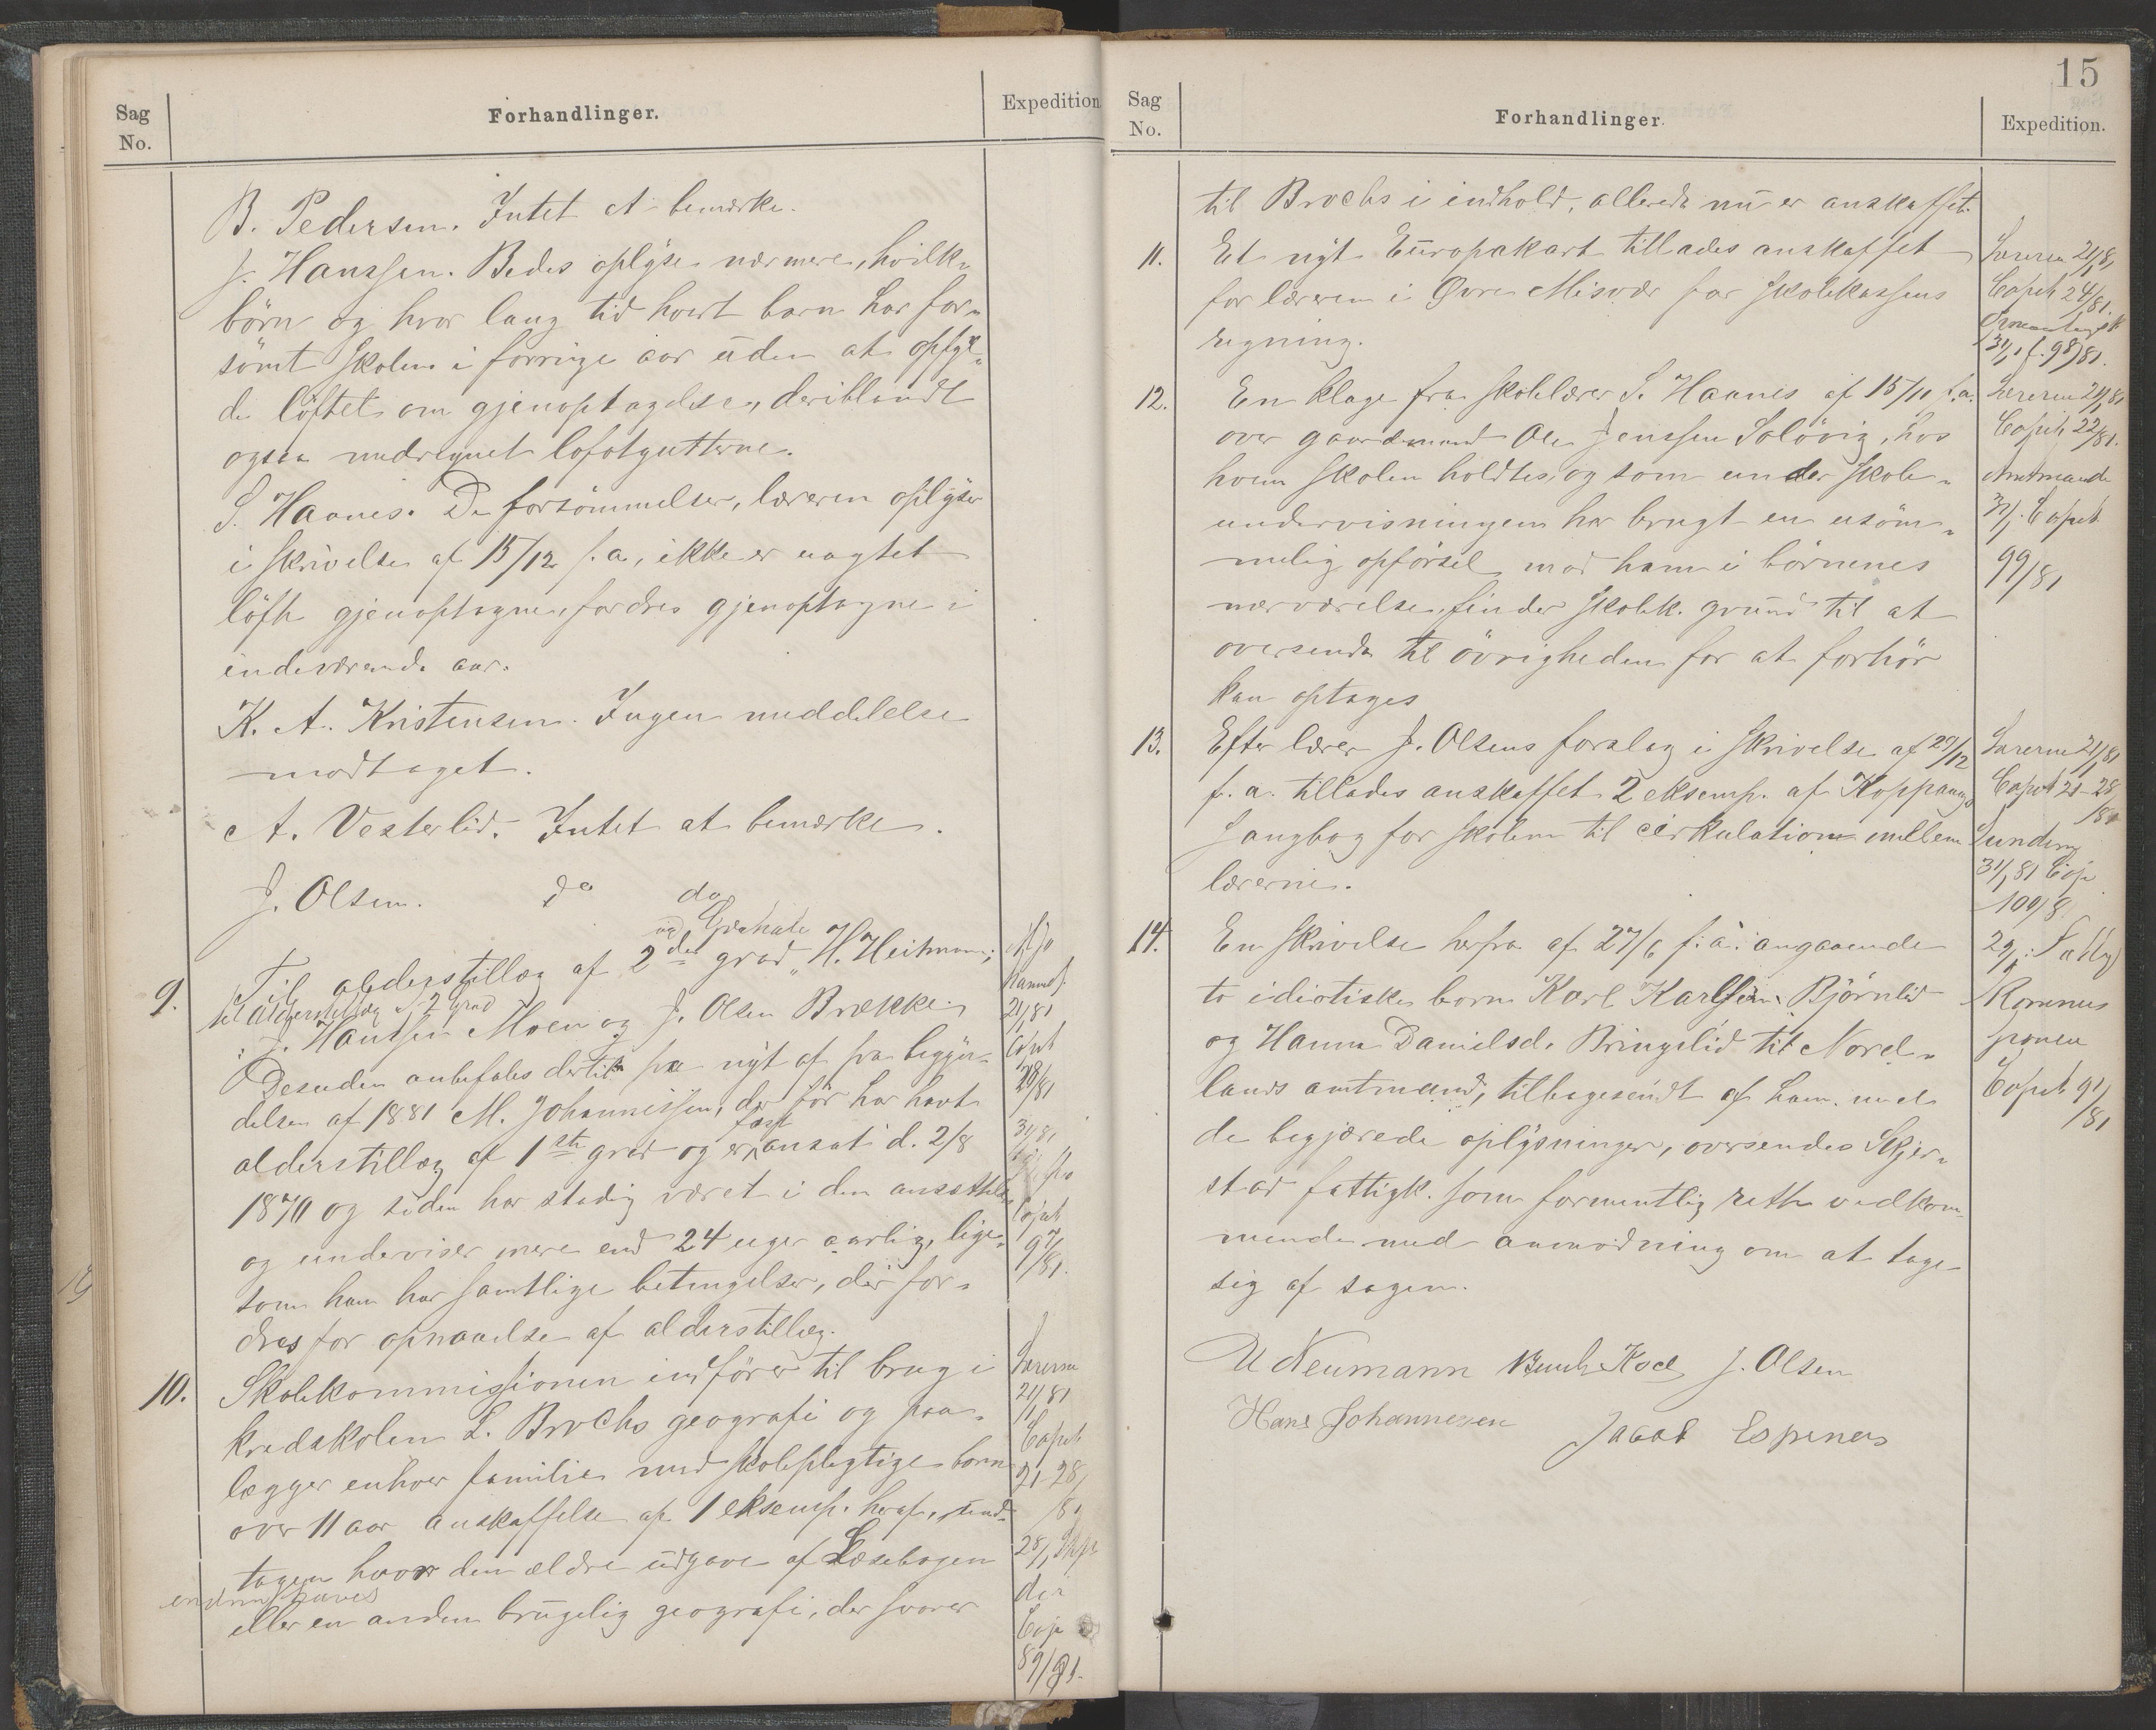 Sag
No.
Forhandlinger.
Expedition
B. Pedersen. Intet at bemærke.
J. Hanssen. Bedes oplyse nærmere, hvilke
börn og hvor lang tid hvert barn har for-
sömt skolen i forrige aar uden at opfyl-
de löftet om gjenoptagelse, deriblandt
ogsaa medregnet lofotgutterne.
S. Haanes. De forsömmelser, læreren oplyser
i skrivelse af 15/12 f.a., ikke er uagtet
löfte gjenoptagne, fordres gjenoptagne i
indeværende aar.
K. A. Kristensen. Ingen meddelelse
modtaget.
A. Vesterlid. Intet at bemærke.
J. Olsen. do do
9.
Til alderstillæg af 2den grad H. Heitmann;
til alderstillæg af 2 grad
J. Hanssen Moen og J. Olsen Brække.
Desuden anbefales dertil fra nyt af fra begyn-
delsen af 1881 M. Johannissen, der för har havt
alderstillæg af 1ste grad og er fast ansat d. 2/8
1870 og siden har stadig været i den ansættelse
og underviser mere end 24 uger aarlig, lige-
som han har samtlige betingelser, der for-
dres for opnaaelse af alderstillæg.
21/1 81
Copieb
97/81.
10.
Skolekommissionen indförer til brug i
kredsskolen L. Brochs geografi og paa-
lægger enhver familie med skolepligtige börn
over 11 aar anskaffelse af 1 eksemp. heraf, und-
tagen hvor den ældre udgave af Læsebogen
endnu haves
eller en anden brugelig geografi, der svarer
Lærerne
21/1 81
Copieb
21-28/81
Copi
89/81.
15
Sag
No.
Forhandlinger.
Expedition.
til Brochs i indhold, allerede nu er anskaffet.
11.
Et nyt Europakart tillades anskaffet
for læreren i Øvre Misvær for skolekassens
regning.
Læreren 21/1 81
Copieb 24/81.
31/1 f. 98/81.
12.
En klage fra skolelærer S. Haanes af 15/11 f.a.
over gaardmand Ole Jenssen Solövig, hos
hvem skolen holdtes, og som under skole-
undervisningen har brugt en usöm-
melig opförsel mod ham i börnenes
nærværelse, finder skolek. grund til at
oversende til övrigheden for at forhör
kan optages
Læreren 21/1 81
Copieb 22/81.
Amtmande
31/1. Copieb
99/81
13.
Efter lærer J. Olsens forslag i skrivelse af 29/12
f.a. tillades anskaffet 2 eksemp. af Koppangs
Sangbog for skolen til cirkulation mellem
lærerne.
Lærerne 21/1 81
Copieb 21-28
/81
31/1 81 Copi
100/81
14.
En skrivelse herfra af 27/6 f.a. angaaende
to idiotiske börn Karl Karlsen Björnlid
og Hanna Danielsd. Bringslid til Nord-
lands amtmand, tilbagesendt af ham med
de begjærede oplysninger, oversendes Skjer-
stad fattigk. som formentlig rette vedkom-
mende med anmodning om at tage
sig af sagen.
Copieb 91/
/81
U Neumann Buch Koch J. Olsen
Hans Johannesen Jacob Espenes